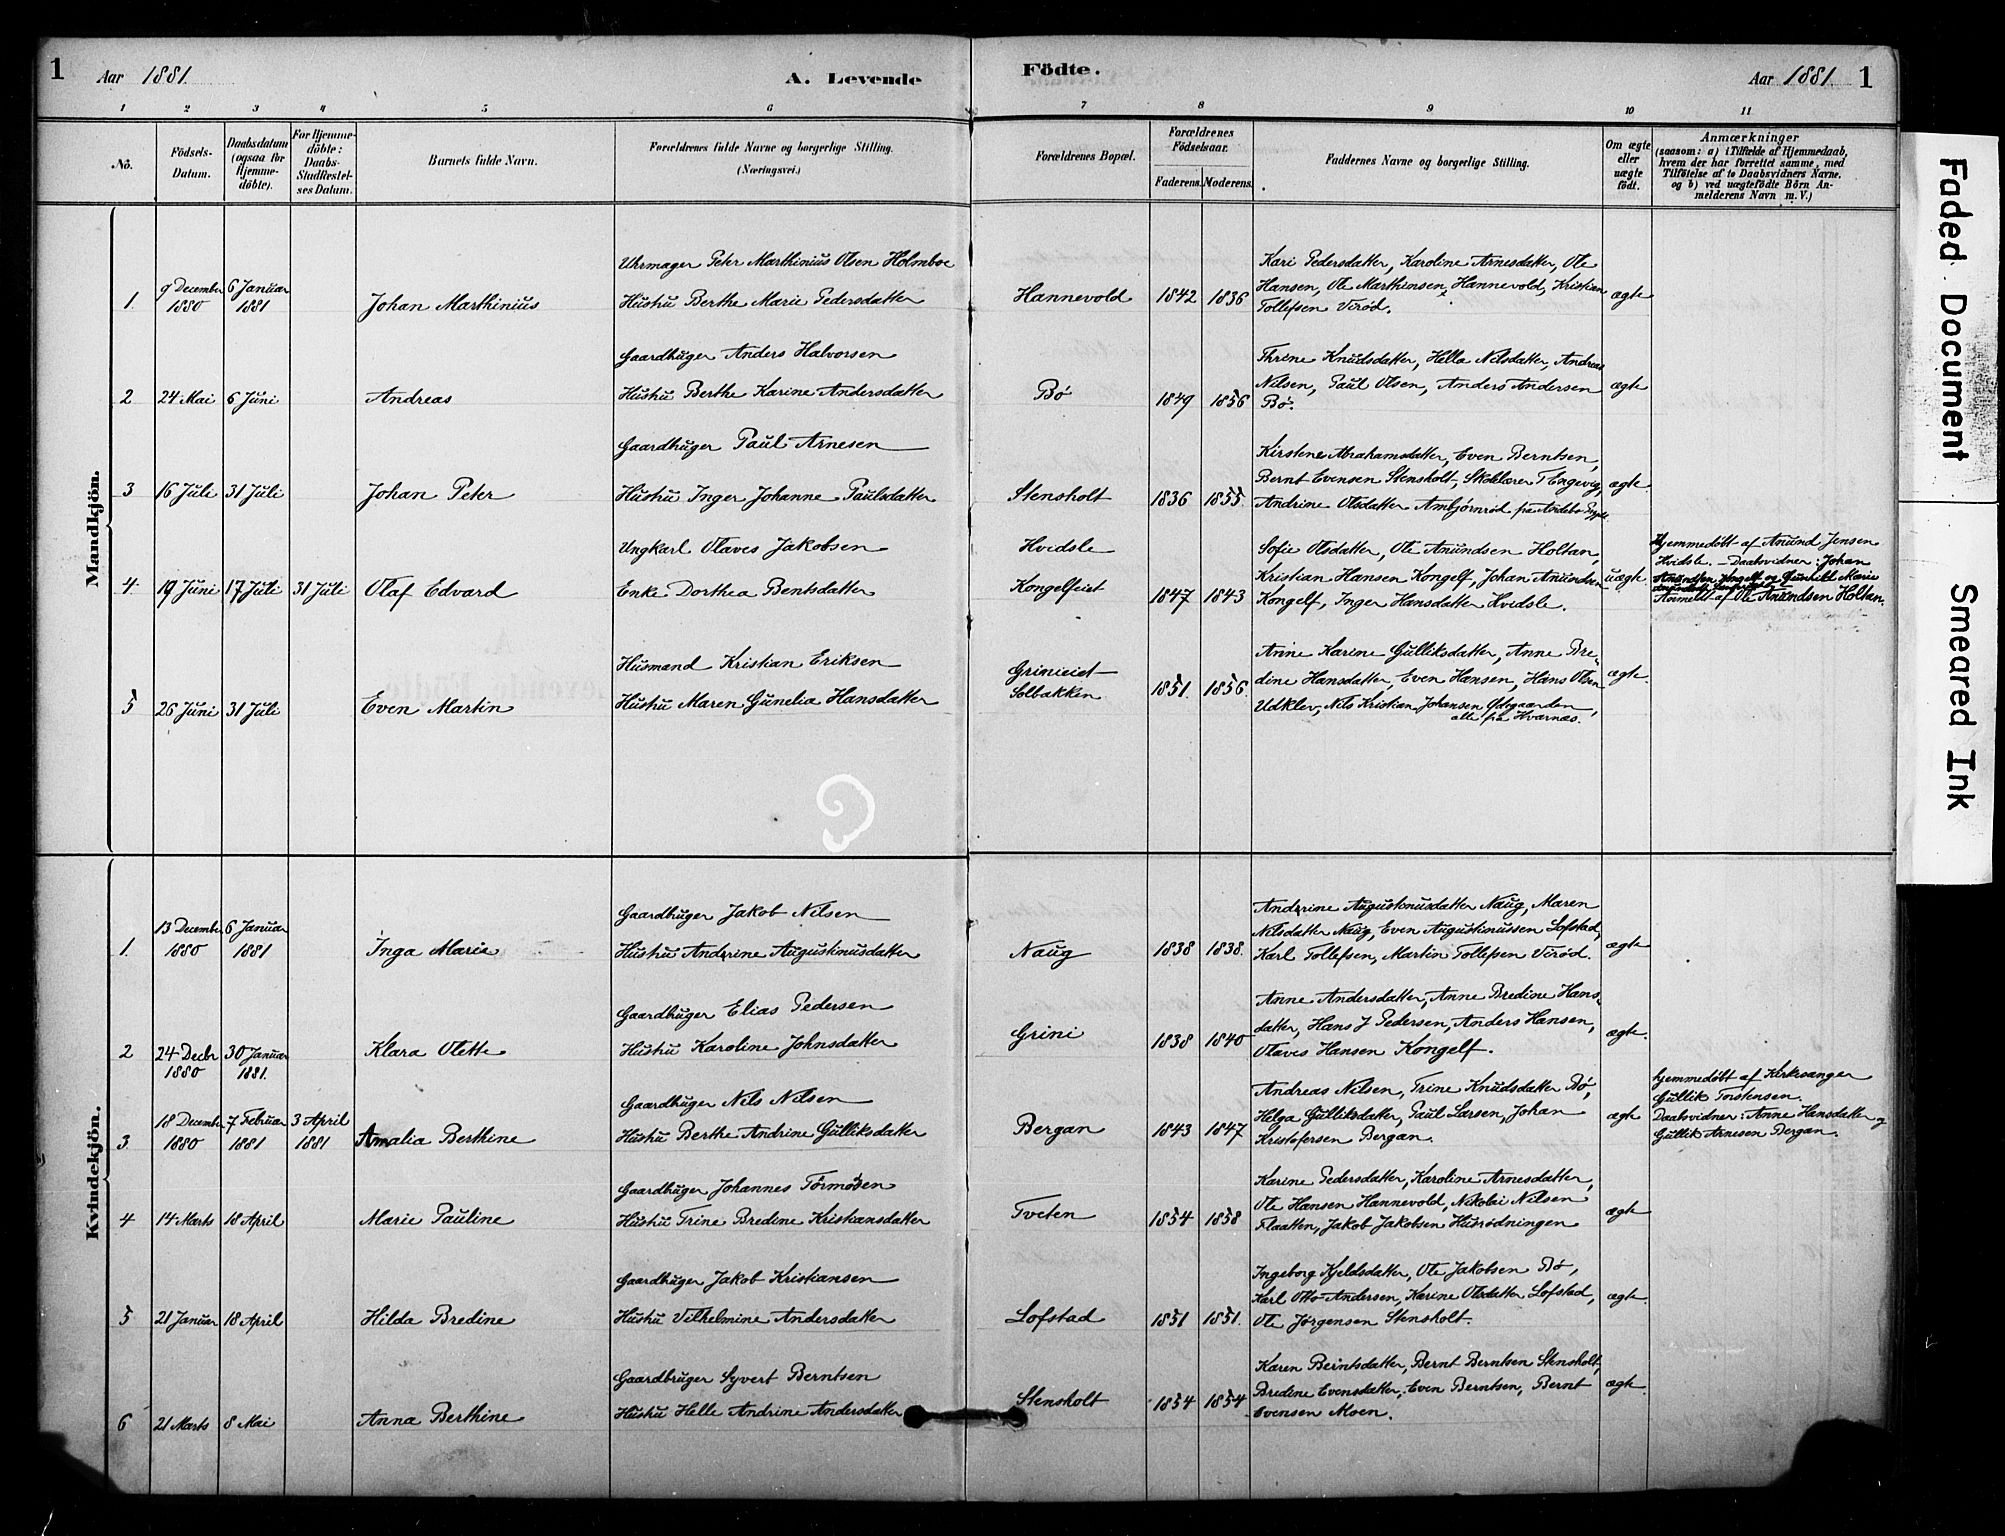 1 Aar 1881. A. Levende Födte. Aar 1881. 1
1 2 3 4 5 6 7 8 9 10 11
No. Födsels-Datum. Daabsdatum (ogsaa for Hjemme-döbte). For Hjemme-döbte: Daabs-Stadfæstel-ses Datum. Barnets fulde Navn. Forældrenes fulde Navne og borgerlige Stilling. (Næringsvei.) Forældrenes Bopæl. Forældrenes Födselsaar. Faderens. Moderens. Faddernes Navne og borgerlige Stilling. Om ægte eller uægte födt. Anmærkninger
(saasom: a) i Tilfælde af Hjemmedaab,
hvem der har forrettet samme, med
Tilföielse af to Daabsvidners Navne.
og b) ved uægtefödte Börn An-
melderens Navn m. V.)
Mandkjön.
1. 9 December 1880 6 Januar 1881 Johan Marthinius
Uhrmager Peter Marthinius Olsen Holmboe
Hustru Berthe Marie Pedersdatter
Hannevold 1842 1836
Kari Pedersdatter, Karoline Arnesdatter, Ole
Hansen, Ole Marthinsen, Hannevold, Kristian
Tollefsen Virød.
ægte
2 24 Mai 6 Juni Andreas
Gaardbruger Anders Halvorsen
Hustru Berthe Karine Andersdatter
Bø 1849 1856
Thrine Knudsdatter, Hella Nilsdatter, Andreas
Nilsen, Paul Olsen, Anders Andersen
Bø.
ægte
3 16 Juli 31 Juli Johan Peter
Gaardbruger Paul Arnesen
Hustru Inger Johanne Paulsdatter
Stensholt 1836 1855.
Kirstene Abrahamsdatter, Even Berntsen,
Bernt Evensen Stensholt, Skolelærer T Engevig,
Andrine Olsdatter Ambjørnrød fra Andebo
ægte
4 19 Juni 17 Juli 31 Juli Olaf Edvard
Ungkarl Olaves Jakobsen
Enke Dorthea Bentsdatter
Hvidsle
Kongelfeiet
1847 1843
Sofie Olsdatter, Ole Anundsen Holtan,
Kristian Hansen Kongelf, Johan Anundsen
Kongelf, Inger Hansdatter Hvidsle.
uægte
Hjemmedøbt af Anund Jensen
Hvidsle. - Daabvidner: Johan
Anundsen Kongelf og Gunhild Marie
Anmeldt af Ole Anundsen Holtan.
5 26 Juni 31 Juli Even Martin
Husmand Kristian Eriksen
Hustru Maren Gunelia Hansdatter
Grinieiet
Solbakken
1851. 1856.
Anne Karine Gulliksdatter, Anne Bre-
dine Hansdatter, Even Hansen, Hans Olsen
Udklev, Nils Kristian Johansen Ødegaarden,
alle fra Hvarnæs.
ægte.
Kvindekjön.
1. 13 December 1880 6 Januar 1881 Inga Marie
Gaardbruger Jakob Nilsen
Hustru Andrine Augustinusdatter
Naug 1838 1838.
Andrine Augustinusdatter Naug, Maren
Nilsdatter Naug, Even Augustinussen Lofstad,
Karl Tollefsen, Martin Tollefsen Virød.
ægte
2 24 Decbr 1880 30 Januar 1881. Klara Olette
Gaardbruger Elias Pedersen
Hustru Karoline Johnsdatter
Grini 1838 1840
Anne Andersdatter, Anne Bredine Hans-
datter, Hans J Pedersen, Anders Hansen,
Olaves Hansen Kongelf.
ægte.
3. 18 December 1880 7 Februar 1881 3 April 1881 Amalia Berthine
Gaardbruger Nils Nilsen
Hustru Berthe Andrine Gulliksdatter
Bergan 1843 1847
Andreas Nilsen, Trine Knudsdatter Bø,
Helga Gulliksdatter, Paul Larsen, Johan
Kristofersen Bergan.
ægte
hjemmedøbt af Kirkesanger
Gullik Torstensen.
Daabvidner: Anne Hansdatter og
Gullik Arnesen Bergan.
4 14 Marts 18 April Marie Pauline
Gaardbruger Johannes Tormodsen
Hustru Trine Bredine Kristiansdatter
Tveten 1854 1858
Karine Pedersdatter, Karoline Arnesdatter,
Ole Hansen Hannevold, Nikolai Nilsen
Flaatten, Jakob Jakobsen Husrødningen
ægte
5 21 Januar 18 April Hilda Bredine
Gaardbruger Jakob Kristiansen
Hustru Vilhelmine Andersdatter
Lofstad 1851 1851.
Ingeborg Kjeldsdatter, Ole Jakobsen Bø,
Karl Otto Andersen, Karine Olsdatter Lofstad,
Ole Jørgensen Stensholt.
ægte.
6 21 Marts 8 Mai Anna Berthine
Gaardbruger Syvert Berntsen
Hustru Helle Andrine Andersdatter
Stensholt 1854 1854
Karen Berntsdatter, Bernt Berntsen Stensholt,
Bredine Evensdatter, Even Berntsen, Bernt
Evensen Moen.
ægte.
Faded Document
Smeared Ink